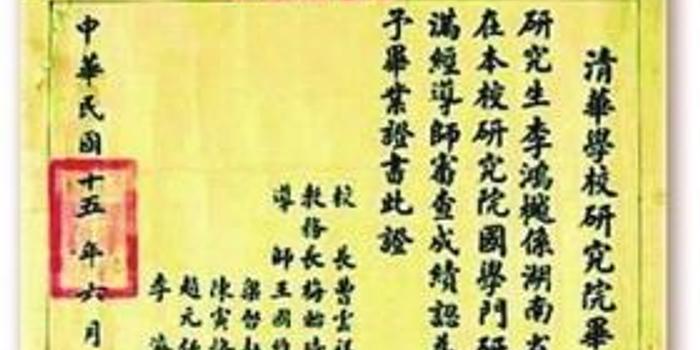 清華學校研究院畢
研究生李鴻樾係湖南
在本校研究院國學門研
滿經導師審查成績認為
予畢業證書此證
校長曹雲祥
教務長梅貽琦
導師王國維
梁啓超
陳寅恪
趙元任
李濟
中華民國十五年六月